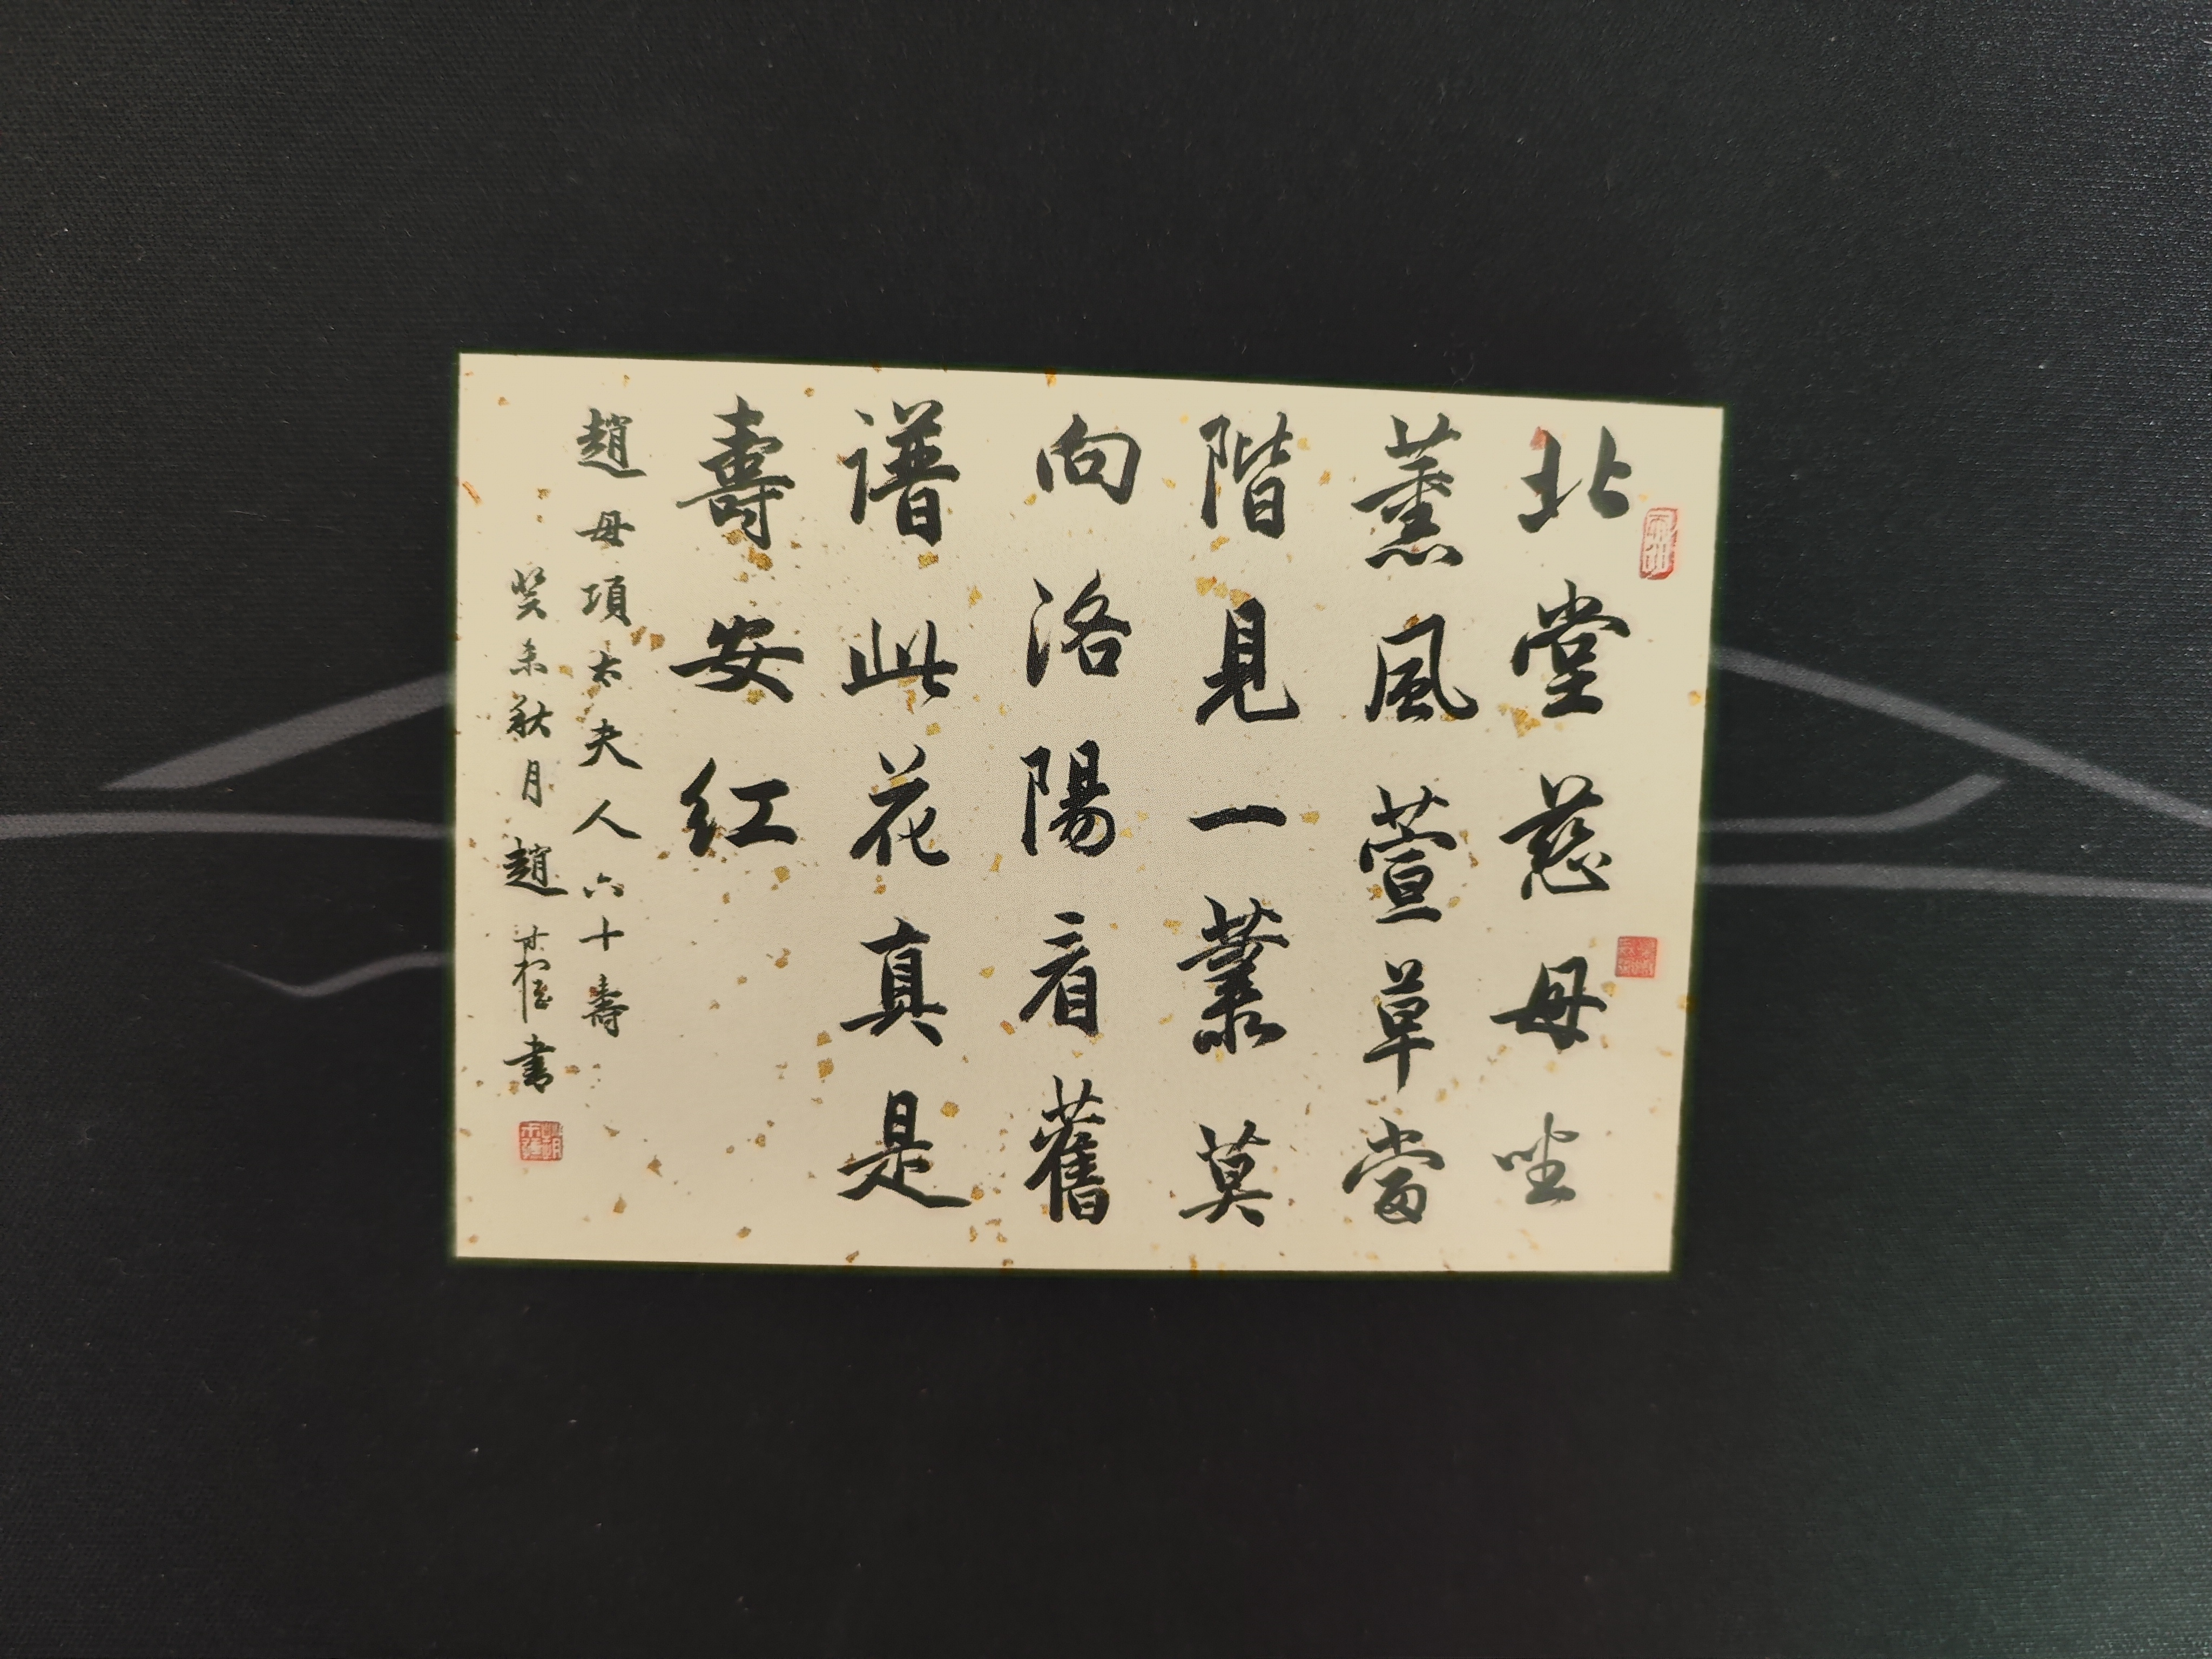 北堂慈母坐
薰風萱草當
階見一叢莫
向洛陽看舊
譜此花真是
壽安红
趙母項太夫人六十壽
癸未秋月趙
書